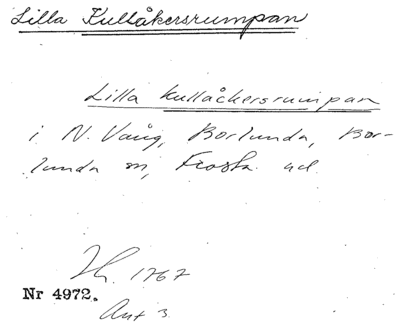 Lilla Kullåkersrumpan
Lilla kullåckersrumpan
i N. Vång, Borlunda, Bor-
lunda sn, Frosta hd
1767
Nr 4972.
Akt 3